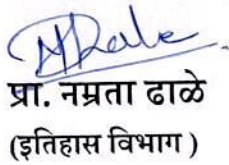 प्रा. नम्रता ढाळे
(इतिहास विभाग )